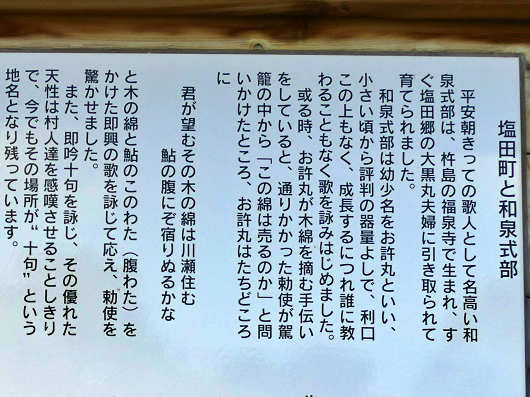 塩田町と和泉式部
平安朝きっての歌人として名高い和
泉式部は、杵島の福泉寺で生まれ、す
ぐ塩田郷の大黒丸夫婦に引き取られて
育てられました。
和泉式部は幼少名をお許丸といい、
小さい頃から評判の器量よしで、利口
この上もなく、成長するにつれ誰に教
わることもなく歌を詠みはじめました。
或る時、お許丸が木綿を摘む手伝い
をしていると、通りかかった勅使が駕
籠の中から「この綿は売るのか」と問
いかけたところ、お許丸はたちどころ
に
君が望むその木の綿は川瀬住む
鮎の腹にぞ宿りぬるかな
と木の綿と鮎のこのわた（腹わた）を
かけた即興の歌を詠じて応え、勅使を
驚かせました。
また、即吟十句を詠じ、その優れた
天性は村人達を感嘆させることしきり
で、今でもその場所が“十句”という
地名となり残っています。